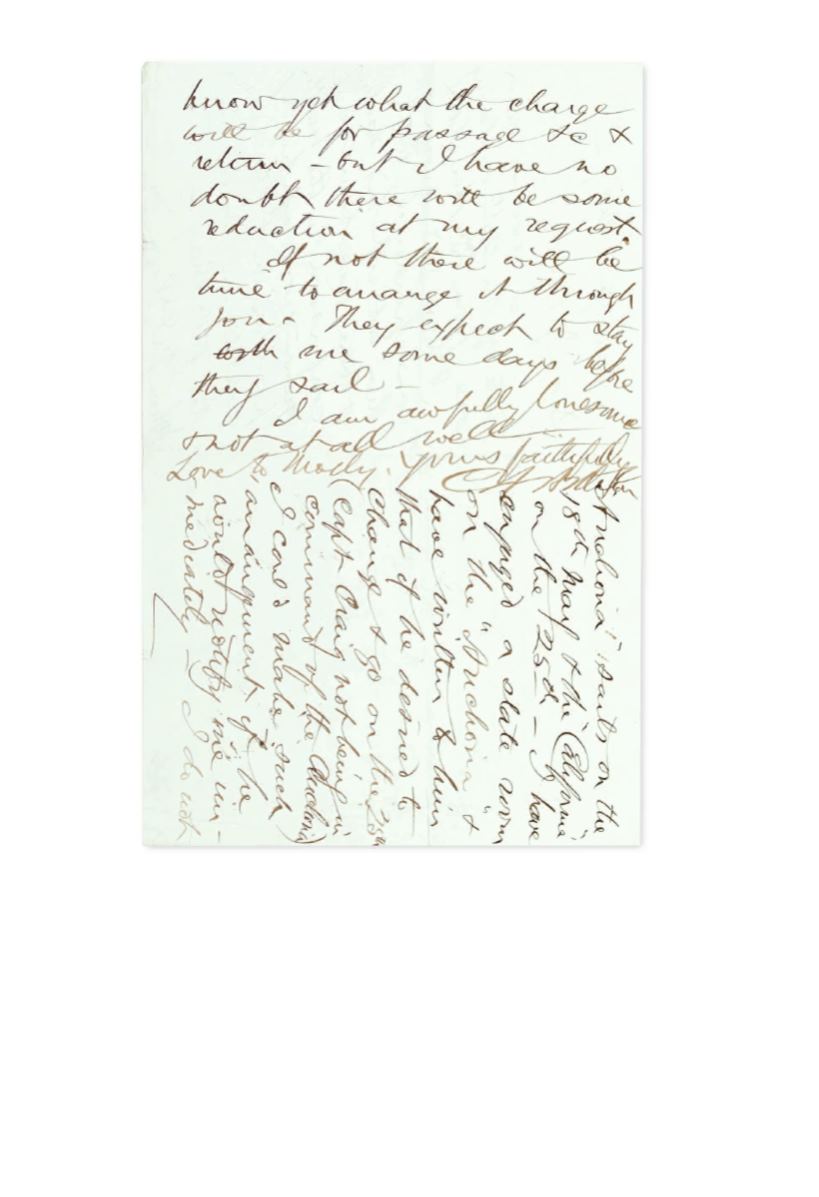 Anchoria" sails on the
18th May & the California
on the 25th – I have
engaged a state room
on the "Anchoria" &
have written to him
that if he desired to
change & go on the 25th
(Capt Craig not being in
command of the Anchoria)
I could make such
arrangement if he
would notify me im-
mediately – I do not
know yet what the charge
will be for passage &c &
return – but I have no
doubt there will be some
reduction at my request.
If not there will be
time to arrange it through
you – They expect to stay
with me some days before
they sail –
I am awfully lonesome
& not at all well
Love to Molly. Yours faithfully